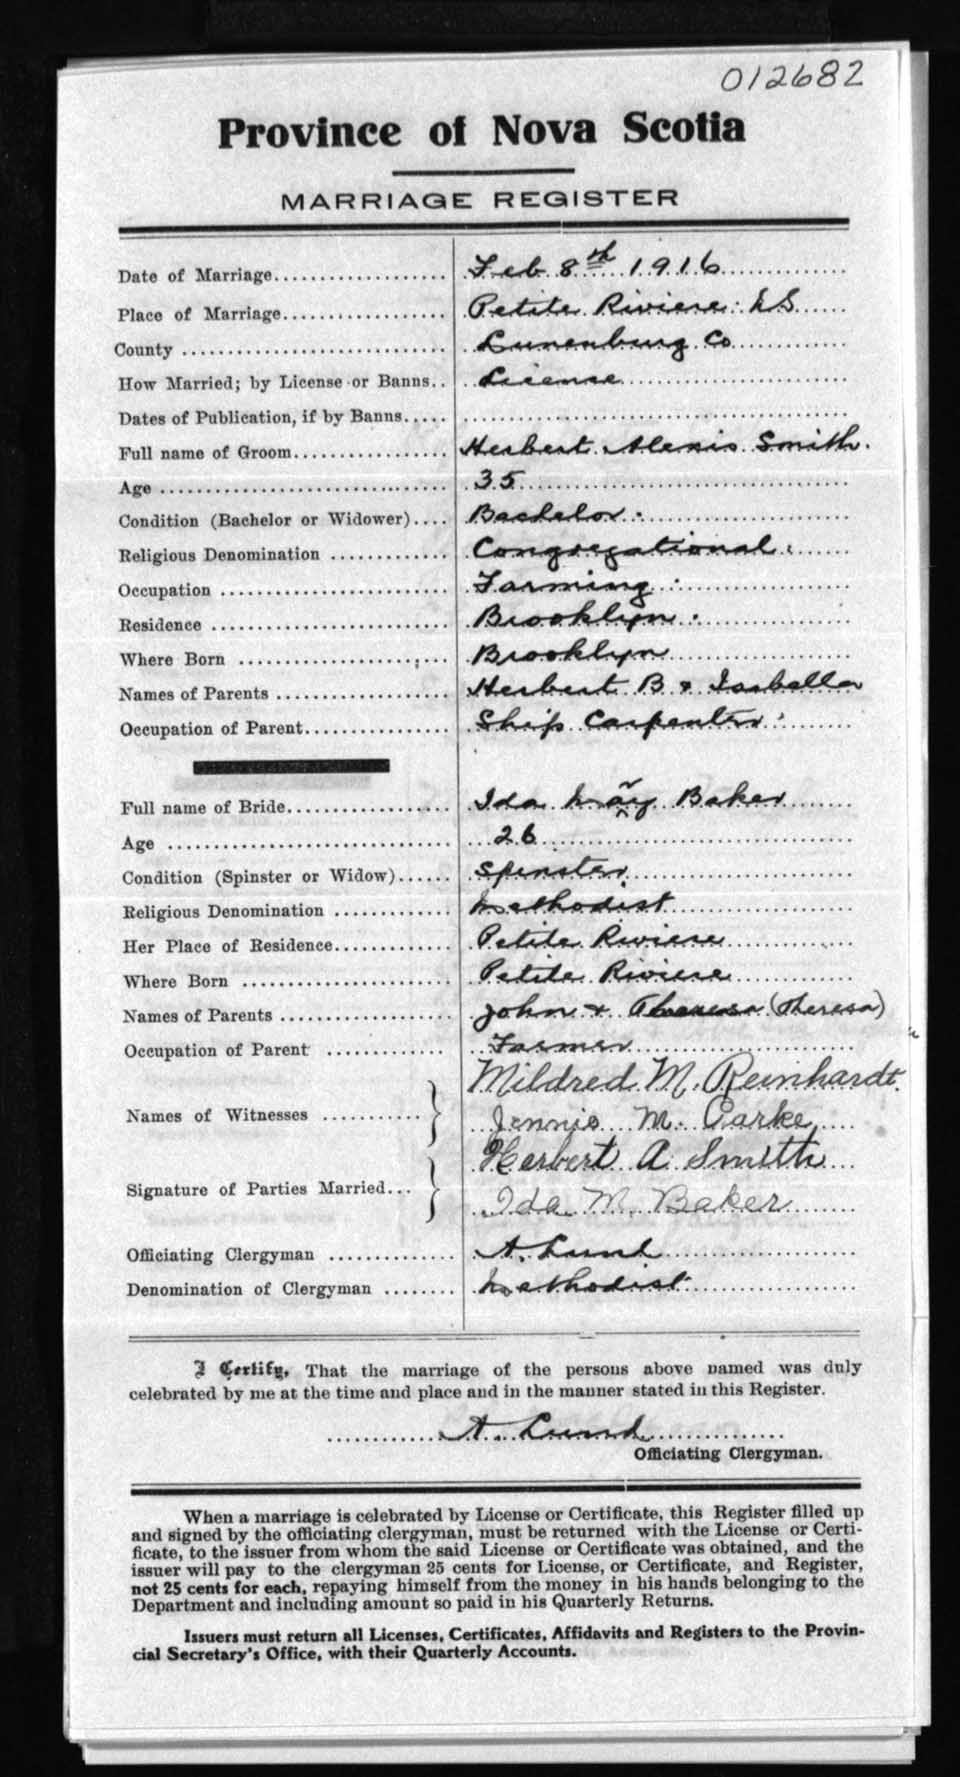 012682
Province of Nova Scotia
MARRIAGE REGISTER
Date of Marriage Feb 8th 1916
Place of Marriage Petite Riviere NS
County Lunenburg Co
How Married; by License or Banns License
Dates of Publication, if by Banns
Full name of Groom Herbert Alexis Smith.
Age 35
Condition (Bachelor or Widower) Bachelor
Religious Denomination Congregational
Occupation Farming
Residence Brooklyn
Where Born Brooklyn
Names of Parents Herbert B & Isabella
Occupation of Parent Ship Carpenter
Full name of Bride Ida May Baker
Age 26
Condition (Spinster or Widow) Spinster
Religious Denomination Methodist
Her Place of Residence Petite Riviere
Where Born Petite Riviere
Names of Parents John & (Theresa)
Occupation of Parent Farmer
Names of Witnesses Mildred M. Reinhardt.
Jennie M. Parke
Signature of Parties Married Herbert A Smith
Ida M. Baker
Officiating Clergyman A. Lund
Denomination of Clergyman Methodist
I Certify, That the marriage of the persons above named was duly
celebrated by me at the time and place and in the manner stated in this Register.
A. Lund
Officiating Clergyman.
When a marriage is celebrated by License or Certificate, this Register filled up
and signed by the officiating clergyman, must be returned with the License or Certi-
ficate, to the issuer from whom the said License or Certificate was obtained, and the
issuer will pay to the clergyman 25 cents for License, or Certificate, and Register,
not 25 cents for each, repaying himself from the money in his hands belonging to the
Department and including amount so paid in his Quarterly Returns.
Issuers must return all Licenses, Certificates, Affidavits and Registers to the Provin-
cial Secretary's Office, with their Quarterly Accounts.